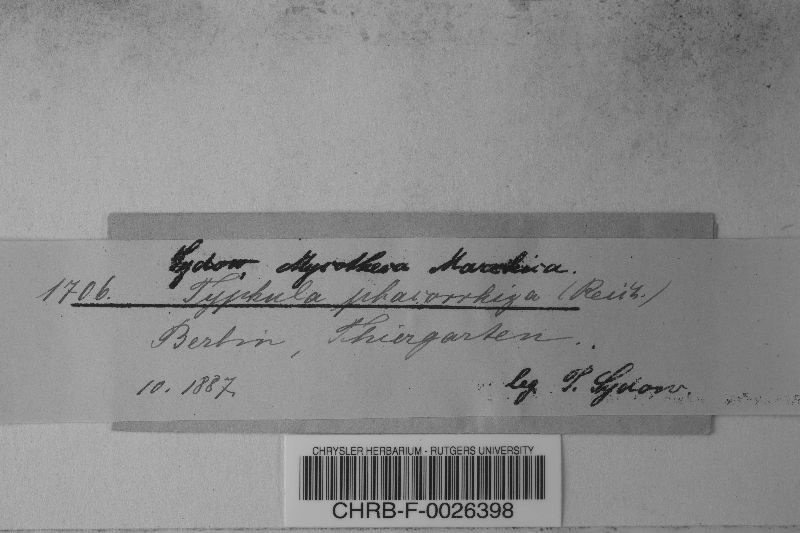 Sydow, Mycotheca Marchica.
1706. Typhula phacorrhiza (Reich.)
Berlin, Thiergarten.
10. 1887.
leg. P. Sydow.
CHRYSLER HERBARIUM - RUTGERS UNIVERSITY
CHRB-F-0026398